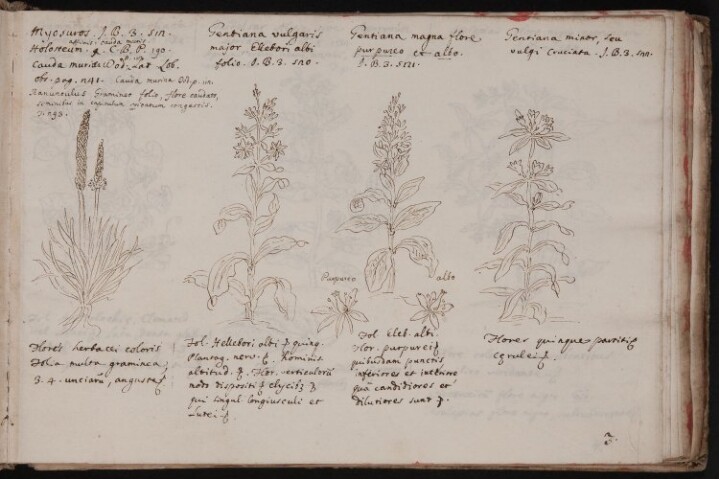 Myosuros J. B. 3. 512.
affinis cauda muris
Holosteum C. B. P. 190.
Cauda muris Dod. Lat. Lob.
obs. png. n41. Cauda murina
Ranunculus Gramineo folio, flore caudato,
seminibus in capitulum spicatum congestis.
Gentiana vulgaris
major Ellebori albi
folio. J. B. 3. 520.
Gentiana magna flore
purpureo et albo.
J. B. 3. 521.
Gentiana minor, seu
vulgi Cruciata. J. B. 3. 522.
Purpureo
albo
Flores herbacei coloris
Folia multa graminea,
3. 4. unciarum, angusta
Fol. Hellebori albi
Plantag. nerv.
altitud. Flor. verticulorū
nodis dispositi
qui singul longiusculi et
lutei
Fol Eleb. albi
Flor. purpurei
quibusdam punctis
inferiores et
candidiores et
dilutiores sunt
Flores quinque partiti
cęrulei
3.